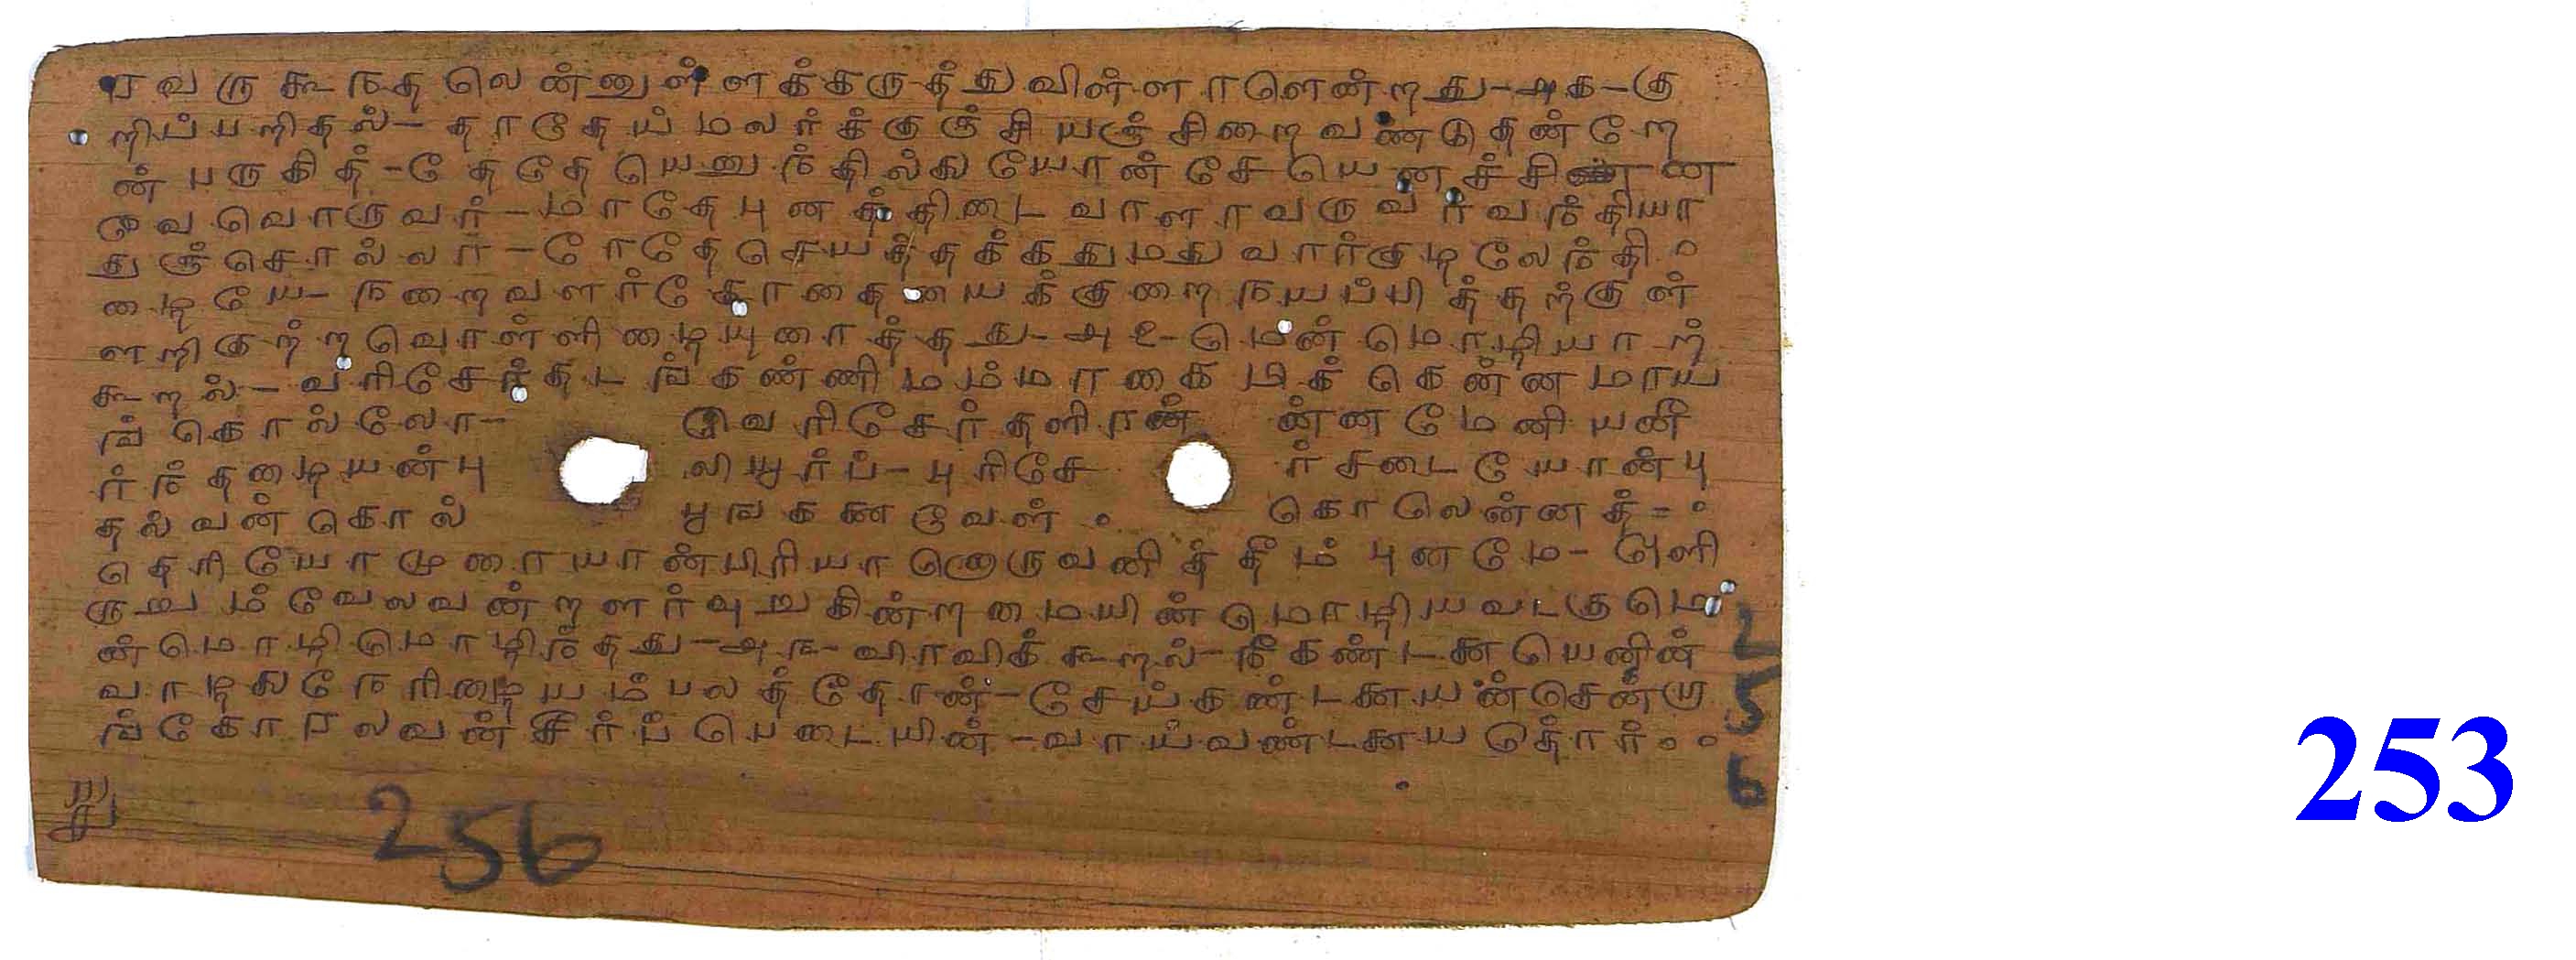 ரவருகூநதலென்னுள்ளக்கருத்துவிள்ளாளென்றது-அக-கு
றிப்பறிதல்-தாதேய்மலர்க்குஞ்சியஞ்சிறைவண்டுதண்டே
ன் பருகித்-தேதேயெனுந்தில்லையோன்சேயெனச்சின்ன
வேவொருவர்-மாதேபுனத்திடைவாளாவருவர்வந்தியா
துஞ்சொல்லார்-தோதேசெயத்தக்கதுமதுவார்குழலேந்தி
ழையே-நறைவளர்கோதையைக்குறைநயப்பித்தற்குள்
ளறிகுற்றவொள்ளிழையுரைத்தது-அ௨-மென்மொழியாற்
கூறல்-வரிசேர்தடங்கண்ணிமம்மர்கைமிக்கென்னமாய
ங்கொல்லோ- வெரிசேர்தளிரன் ன்னமேனியனீ
ர்ந்தழையன்பு லியூர்ப்-புரிசே ர்சடையோன்பு
தல்வன்கொல் பூங்கணைவேள் கொலென்னத்-
தெரியேமுரையான்பிரியானொருவனித்தீம்புனமே-ஒளி
ருறும்வேலவன்றளர்வுறுகின்றமையின்மொழியவடகுமெ
ன்மொழிமொழிந்தது-அ௩-விரவிக்கூறல்-நீகண்டனையெனின்
வாழலைநேரிழையம்பலத்தோன்-சேய்கண்டனையன்சென்று
ங்கோரலவன்சீர்ப்பெடையின்-வாய்வண்டனையதோர்
256
256
253